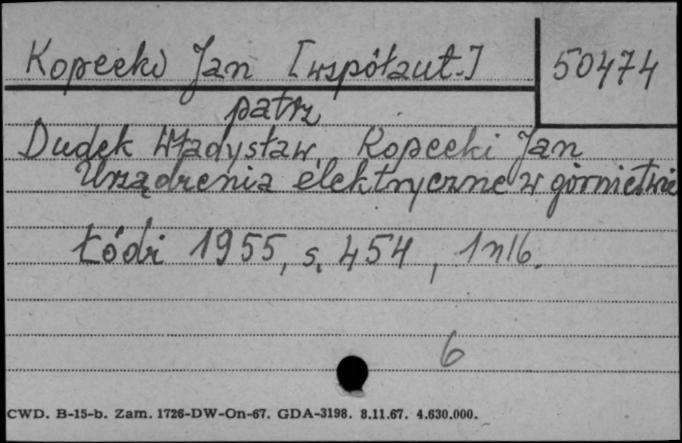 Kopecki Jan [współaut.]
50474
patrz
Dudek Władysław, Kopecki Jan
Urządzenia elektryczne w górnictwie
Łódź 1955, s. 454, 1 nlb.
6
CWD. B-15-b. Zam. 1726-DW-On-67. GDA-3198. 8.11.67. 4.630.000.